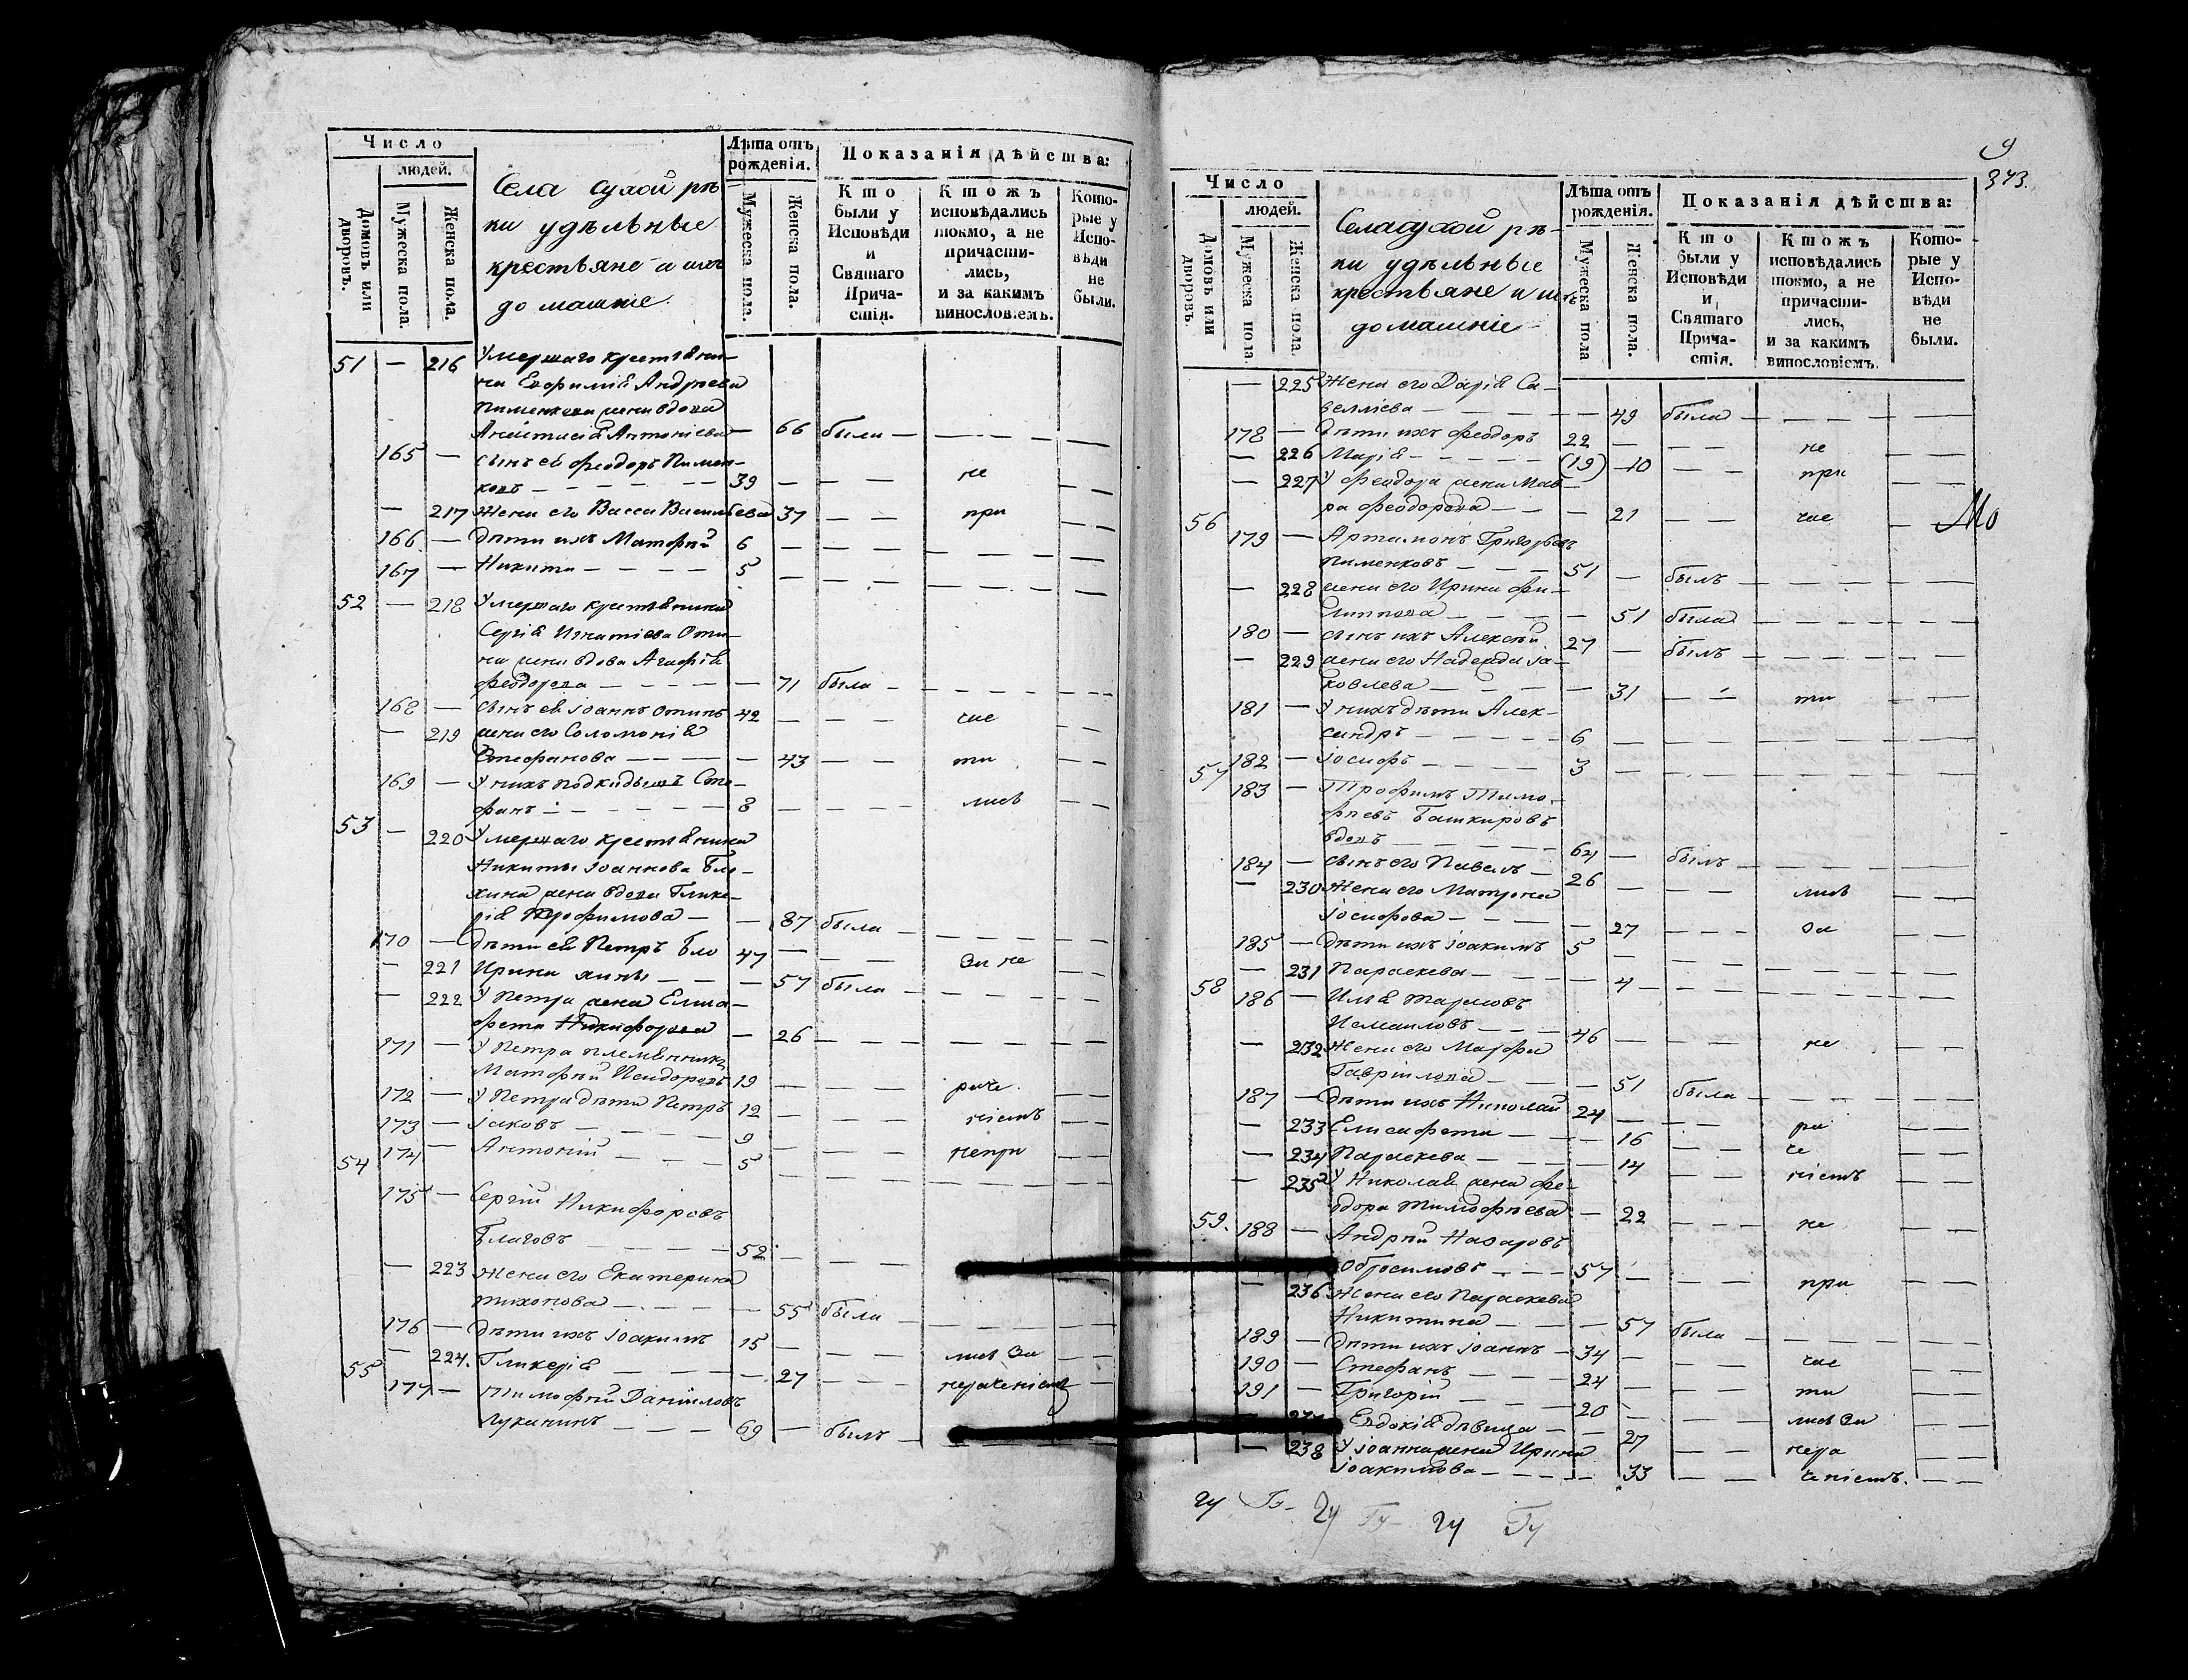 Число
людей.
Домовъ или дворовъ.
Мужеска пола.
Женска пола.
Села Сухой рѣ-
ки удѣльные
крестьяне и ихъ
домашніе.
Лѣта отъ рожденія.
Мужеска пола.
Женска пола.
Показанія дѣйства:
Кто были у Исповѣди и Святаго Причастія.
Ктожъ исповѣдались токмо, а не причастились, и за какимъ винословіемъ.
Которые у Исповѣди не были.
51 — 216 Умершаго крестьяни-
на Евфимія Андреева
Пименкова жена вдова
Анастасія Антоніева — 66 были — — —
165 — сынъ ея Феодоръ Пимен-
ковъ — 39 — — не —
— 217 Жена его Васса Васильева 37 — при —
166 — дѣти ихъ Матфѣй 6 — — — —
167 — Никита — 5 — — — —
52 — 218 Умершаго крестьянина
Сергія Игнатіева Оти-
на жена вдова Агафія
Феодорова — — 71 была — — —
168 — сынъ ея Іоаннъ Отинъ 42 — — час —
— 219 жена его Соломонія
Стефанова — — 43 — ти —
169 — У нихъ подкидышъ Сте-
фанъ — 8 — — лись —
53 — 220 Умершаго крестьянина
Никиты Іоаннова Бло-
хина жена вдова Глике-
рія Трофимова — — 87 была — — —
170 — дѣти ея Петръ Бло 47 — — за не —
— 221 Ирина хины — — 57 была — — —
— 222 У Петра жена Елиса-
фета Никифорова — 26 — — —
171 — У Петра племянникъ
Матфѣй Исидоровъ 19 — — раче —
172 — У Петра дѣти Петръ 12 — — ніемъ —
173 — Іаковъ — 9 — — непри —
174 — Антоній — 5 — — — —
54
175 — Сергій Никифоровъ
Благовъ — 52 — —
— 223 жена его Екатерина
Тихонова — — 55 была — — —
176 — дѣти ихъ Іоакимъ 15 — — лись за —
— 224. Гликерія — — 27 — нераченіемъ —
55 177 — Тимофѣй Даніиловъ
Луканинъ — 69 — былъ — — —
9
343.
Число
людей.
Домовъ или дворовъ.
Мужеска пола.
Женска пола.
Села Сухой рѣ-
ки удѣльные
крестьяне и ихъ
домашніе
Лѣта отъ рожденія.
Мужеска пола
Женска пола.
Показанія дѣйства:
Кто были у Исповѣди и Святаго Причастія.
Ктожъ исповѣдались токмо, а не причастились, и за какимъ винословіемъ.
Которые у Исповѣди не были.
— 225 Жена его Дарія Са-
велліева — — 49 была — — —
178 — дѣти ихъ Феодоръ 22 — — не —
— 226 Марія — (19) —10 — при —
— 227 У Феодора жена Мав-
ра Феодорова — — 21 — час —
56 179 — Артимонъ Григорьевъ
Пименковъ — 51 — былъ — — —
— 228 жена его Ирина Фи-
липпова — — 51 была — — —
180 — сынъ ихъ Алексѣй 27 — былъ — — —
— 229 жена его Надежда Іа-
ковлева — — 31 — ти —
181 — У нихъ дѣти Алек-
сандръ — 6 — — — —
182 — Іосифъ — 3 — — — —
57 183 — Трофимъ Тимо-
фѣевъ Башкировъ
вдовъ — 64 — былъ — — —
184 — сынъ его Павелъ — 26 — — лись —
— 230 Жена его Матрона
Іосифова — — 27 — за —
185 — дѣти ихъ Іоакимъ 5 — — — —
— 231 Параскева — — 4 — — —
58 186 — Илія Тарасовъ
Исмаиловъ — 46 — — не —
— 232 Жена его Марфа
Гавріилова — — 51 была — — —
187 — дѣти ихъ Николай 24 — — ра —
— 233 Елисафета — — 16 — че —
— 234 Параскева — — 14 — ніемъ —
— 235 У Николая жена Фе-
одора Тимофѣева — 22 — не —
59. 188 — Андрѣй Назаровъ
Обросимовъ — 57 — — при —
— 236 Жена его Параскева
Никитина — — 57 была — — —
189 — дѣти ихъ Іоаннъ — 34 — — час —
190 — Стефанъ — 24 — — ти —
191 — Григорій — 20 — — лись за —
Евдокія дѣвица — — 27 — нера —
— 238 У Іоанна жена Ирина
Іоакимова — — 33 — ченіемъ. —